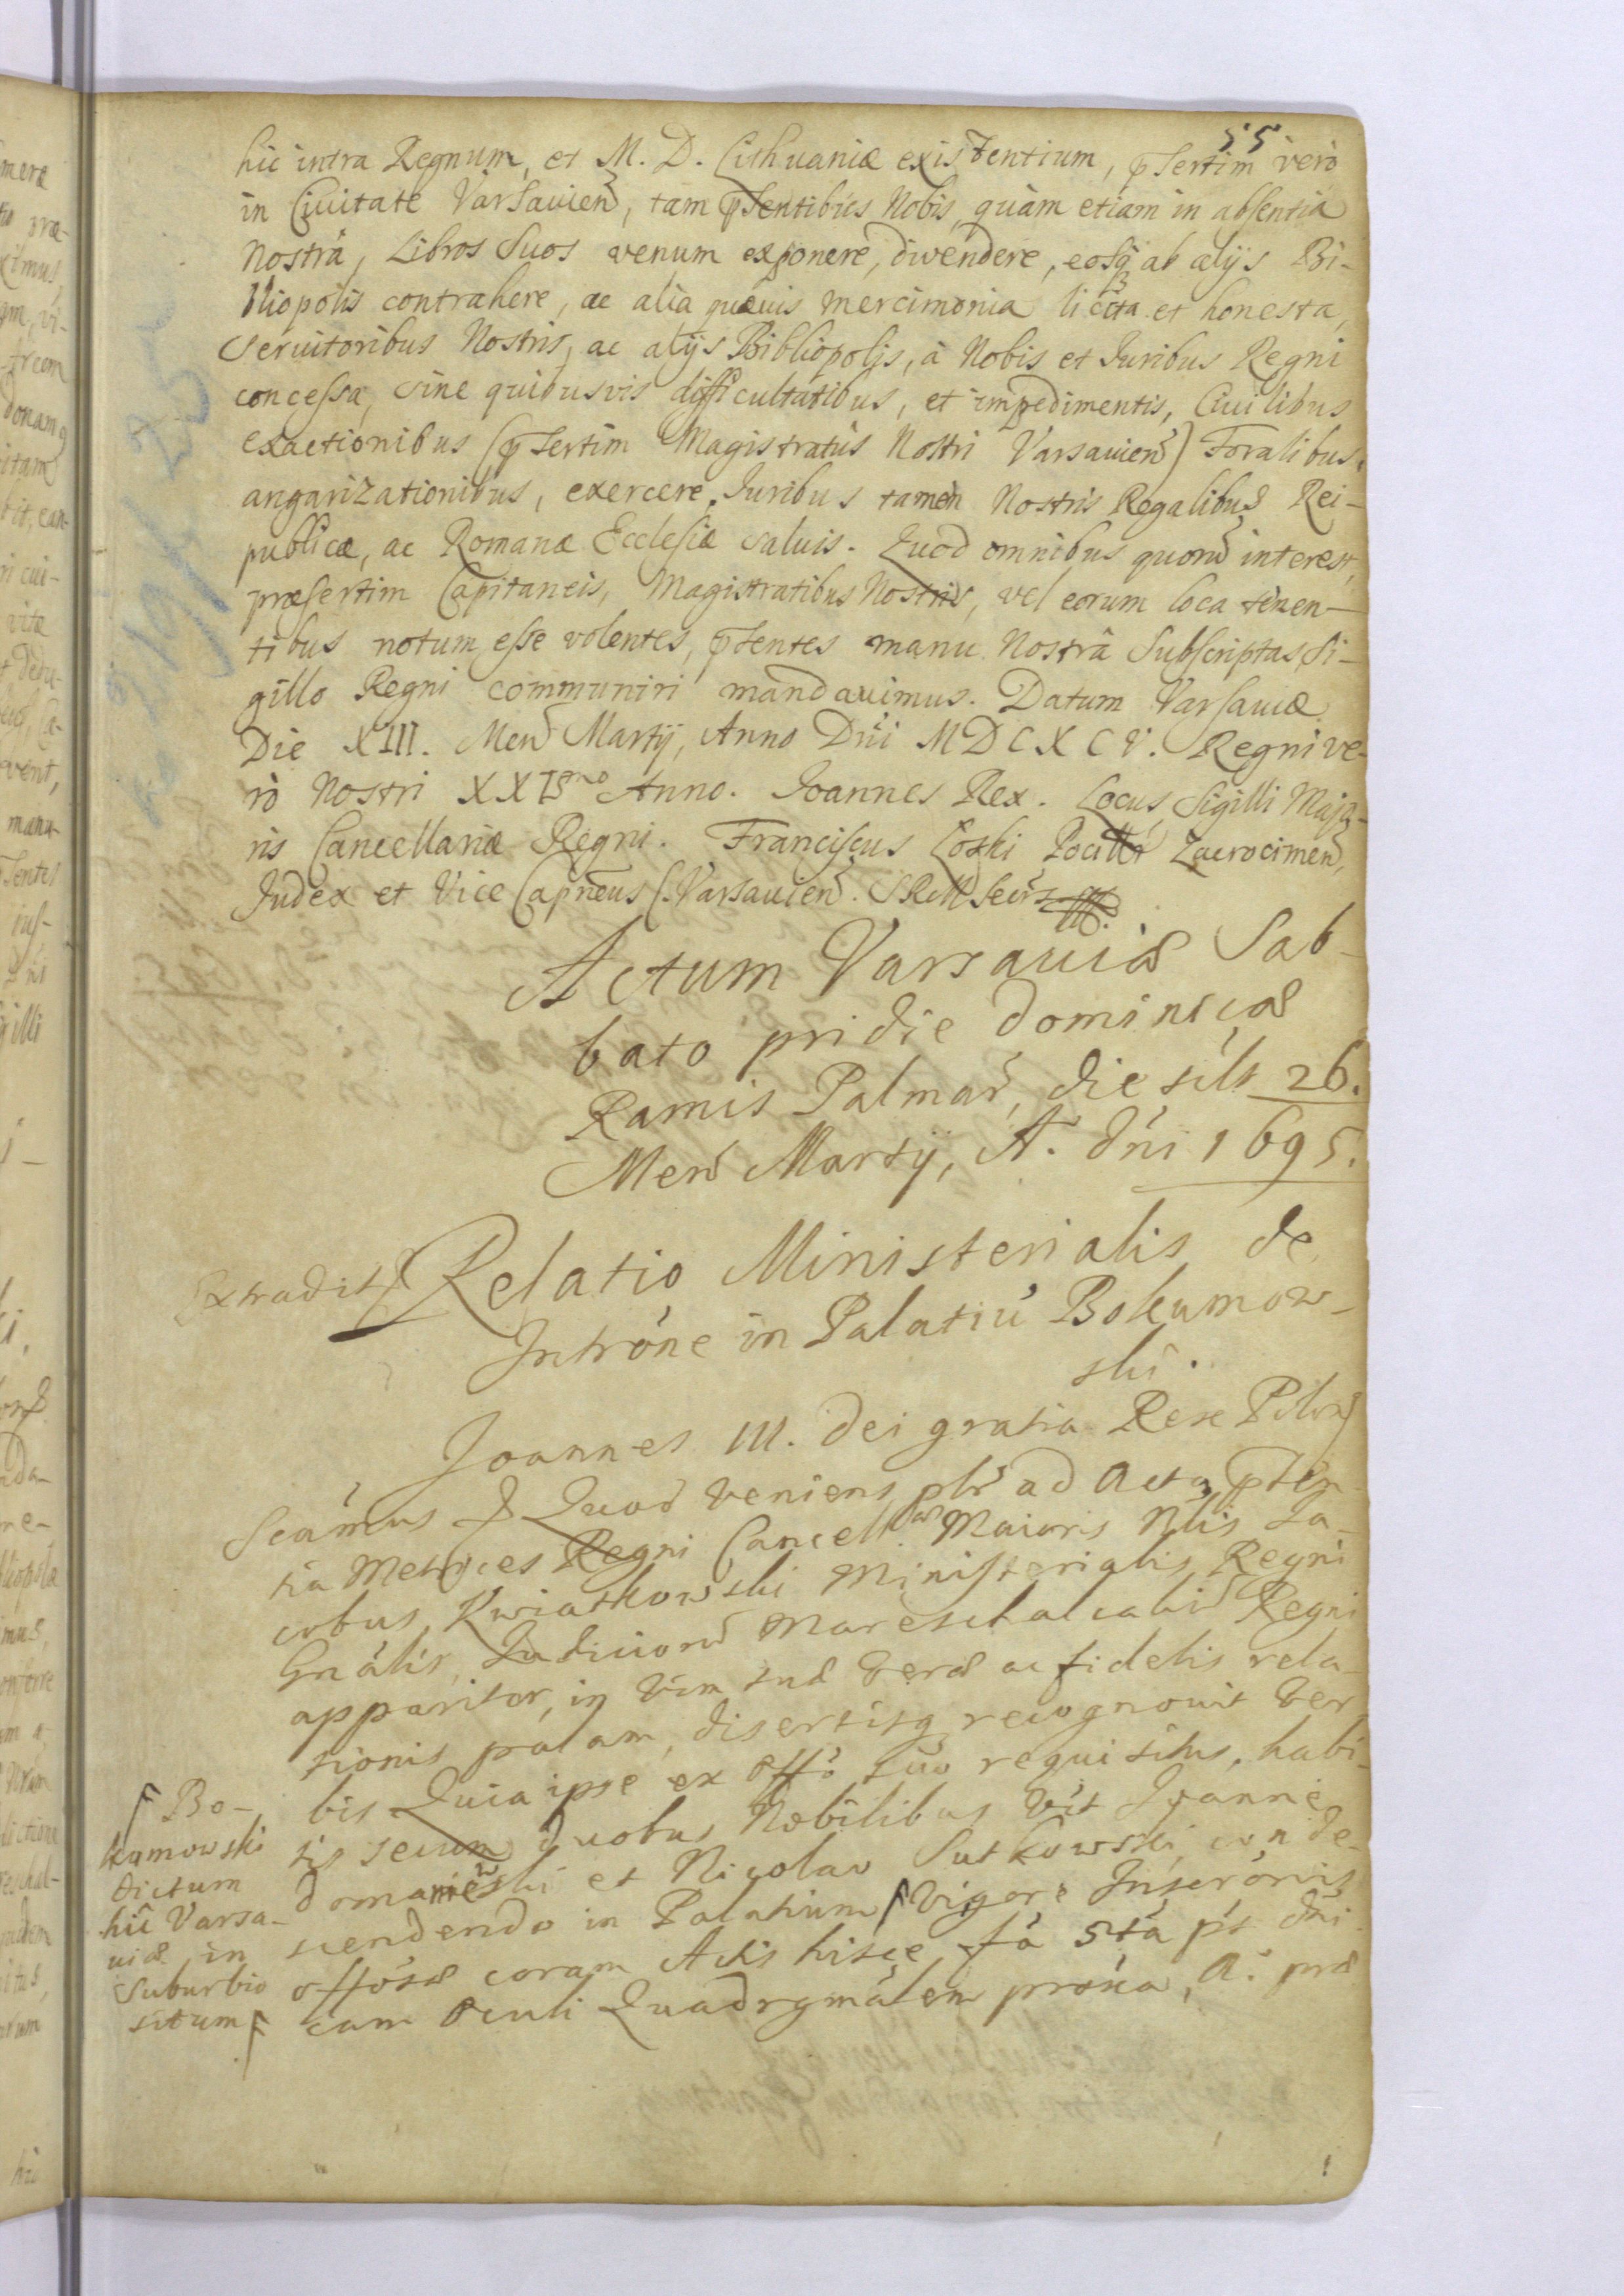 55
hic intra Regnum, et M. D. Lithuaniæ existentium, pſertim verò
in Ciuitate Varsauień, tam pſentibus Nobis, quàm etiam in abſentiâ
Nostrâ, Libros Suos venum exponere, divendere, eosq ab alijs Bi-
bliopolis contrahere, ac alia quævis mercimonia licita et honesta,
Seruitoribus Nostris, ac alijs Bibliopolis, à Nobis et Juribus Regni
conceſsa, sine quibusvis difficultatibus, et impedimentis, Ciuilibus
exactionibus (pſertim Magistratûs Nostri Varsauień) Foralibus,
angarizationibus, exercere. Juribus tamen Nostris Regalibus Rei-
publicæ, ac Romanæ Eccleſiæ saluis. Quod omnibus quorũ interest,
præſertim Capitaneis, Magistratibus Nostris, vel eorum loca tenen-
tibus notum eſse volentes, pſentes manu Nostrâ Subſcriptas, Si-
gillo Regni communiri mandavimus. Datum Varſauiæ
Die XIII. Meñ Martij, Anno Dñi MDCXCV. Regni ve-
rò Nostri XXI Anno. Joannes Rex. Locus Sigilli Majo-
ris Cancellariæ Regni. Franciſcus Loski Pocilltr Zacrocimeñ,
Judex et Vice Capneus C. Varsauień. SRM Secrs
Actum Varsauiæ Sab-
bato pridie Dominicæ
Ramis Palmaŕ, die scils 26.
Meñ Martij, A. dńi 1695.
Extradit Relatio Ministerialis de
Intróne in Palatiú Bokumow-
ski.
Joannes III. Dei gratia Rex Polon
Scámus & Quod veniens plr ad Acta pſen
tia Metryces Regni Cancell. Maioris Nŕis Ja-
cobus Kwiatkowski Ministerialis Regni
Gnális, Judiciorũ Mareschalcaliũ Regni
apparitor, in vim suæ veræ ac fidelis rela-
tionis palam, disertisq recognouit ver
bis Quia ipse ex offo suo requisitus, habi-
tis secum duobus Nobilibus vit Joanne
Domaniewski et Nicolao Sutkowski, con de-
scendendo in Palatium Vigore Inserónis
offósæ coram Actis hisce fâ 5tâ pśt dńi
cam Oculi Quadrgmálem proxa, A. præ
Bo-
kumowski
dictum
hic Varsa-
uiæ in
Suburbio
situm